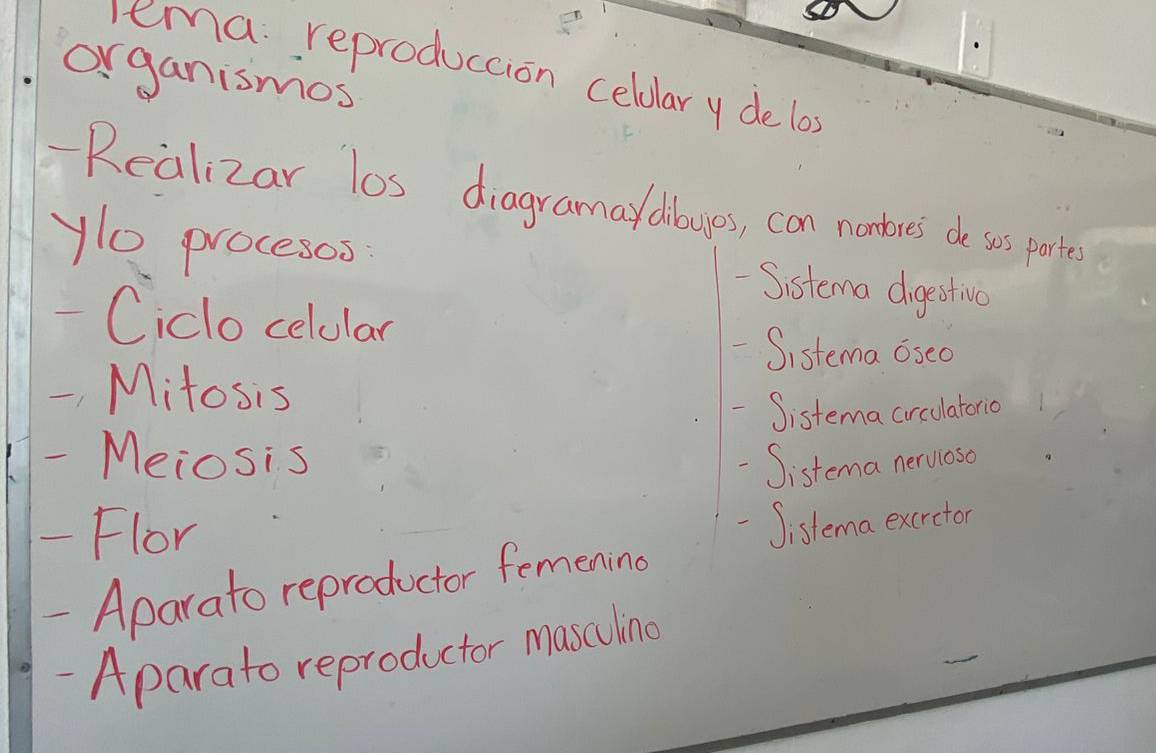 Tema: reproducción celular y de los
organismos
-Realizar los diagramas/dibujos, con nombres de sus partes
y/o procesos:
- Ciclo celular
- Mitosis
- Meiosis
- Flor
- Aparato reproductor femenino
- Aparato reproductor masculino
- Sistema digestivo
- Sistema óseo
- Sistema circulatorio
- Sistema nervioso
- Sistema excretor